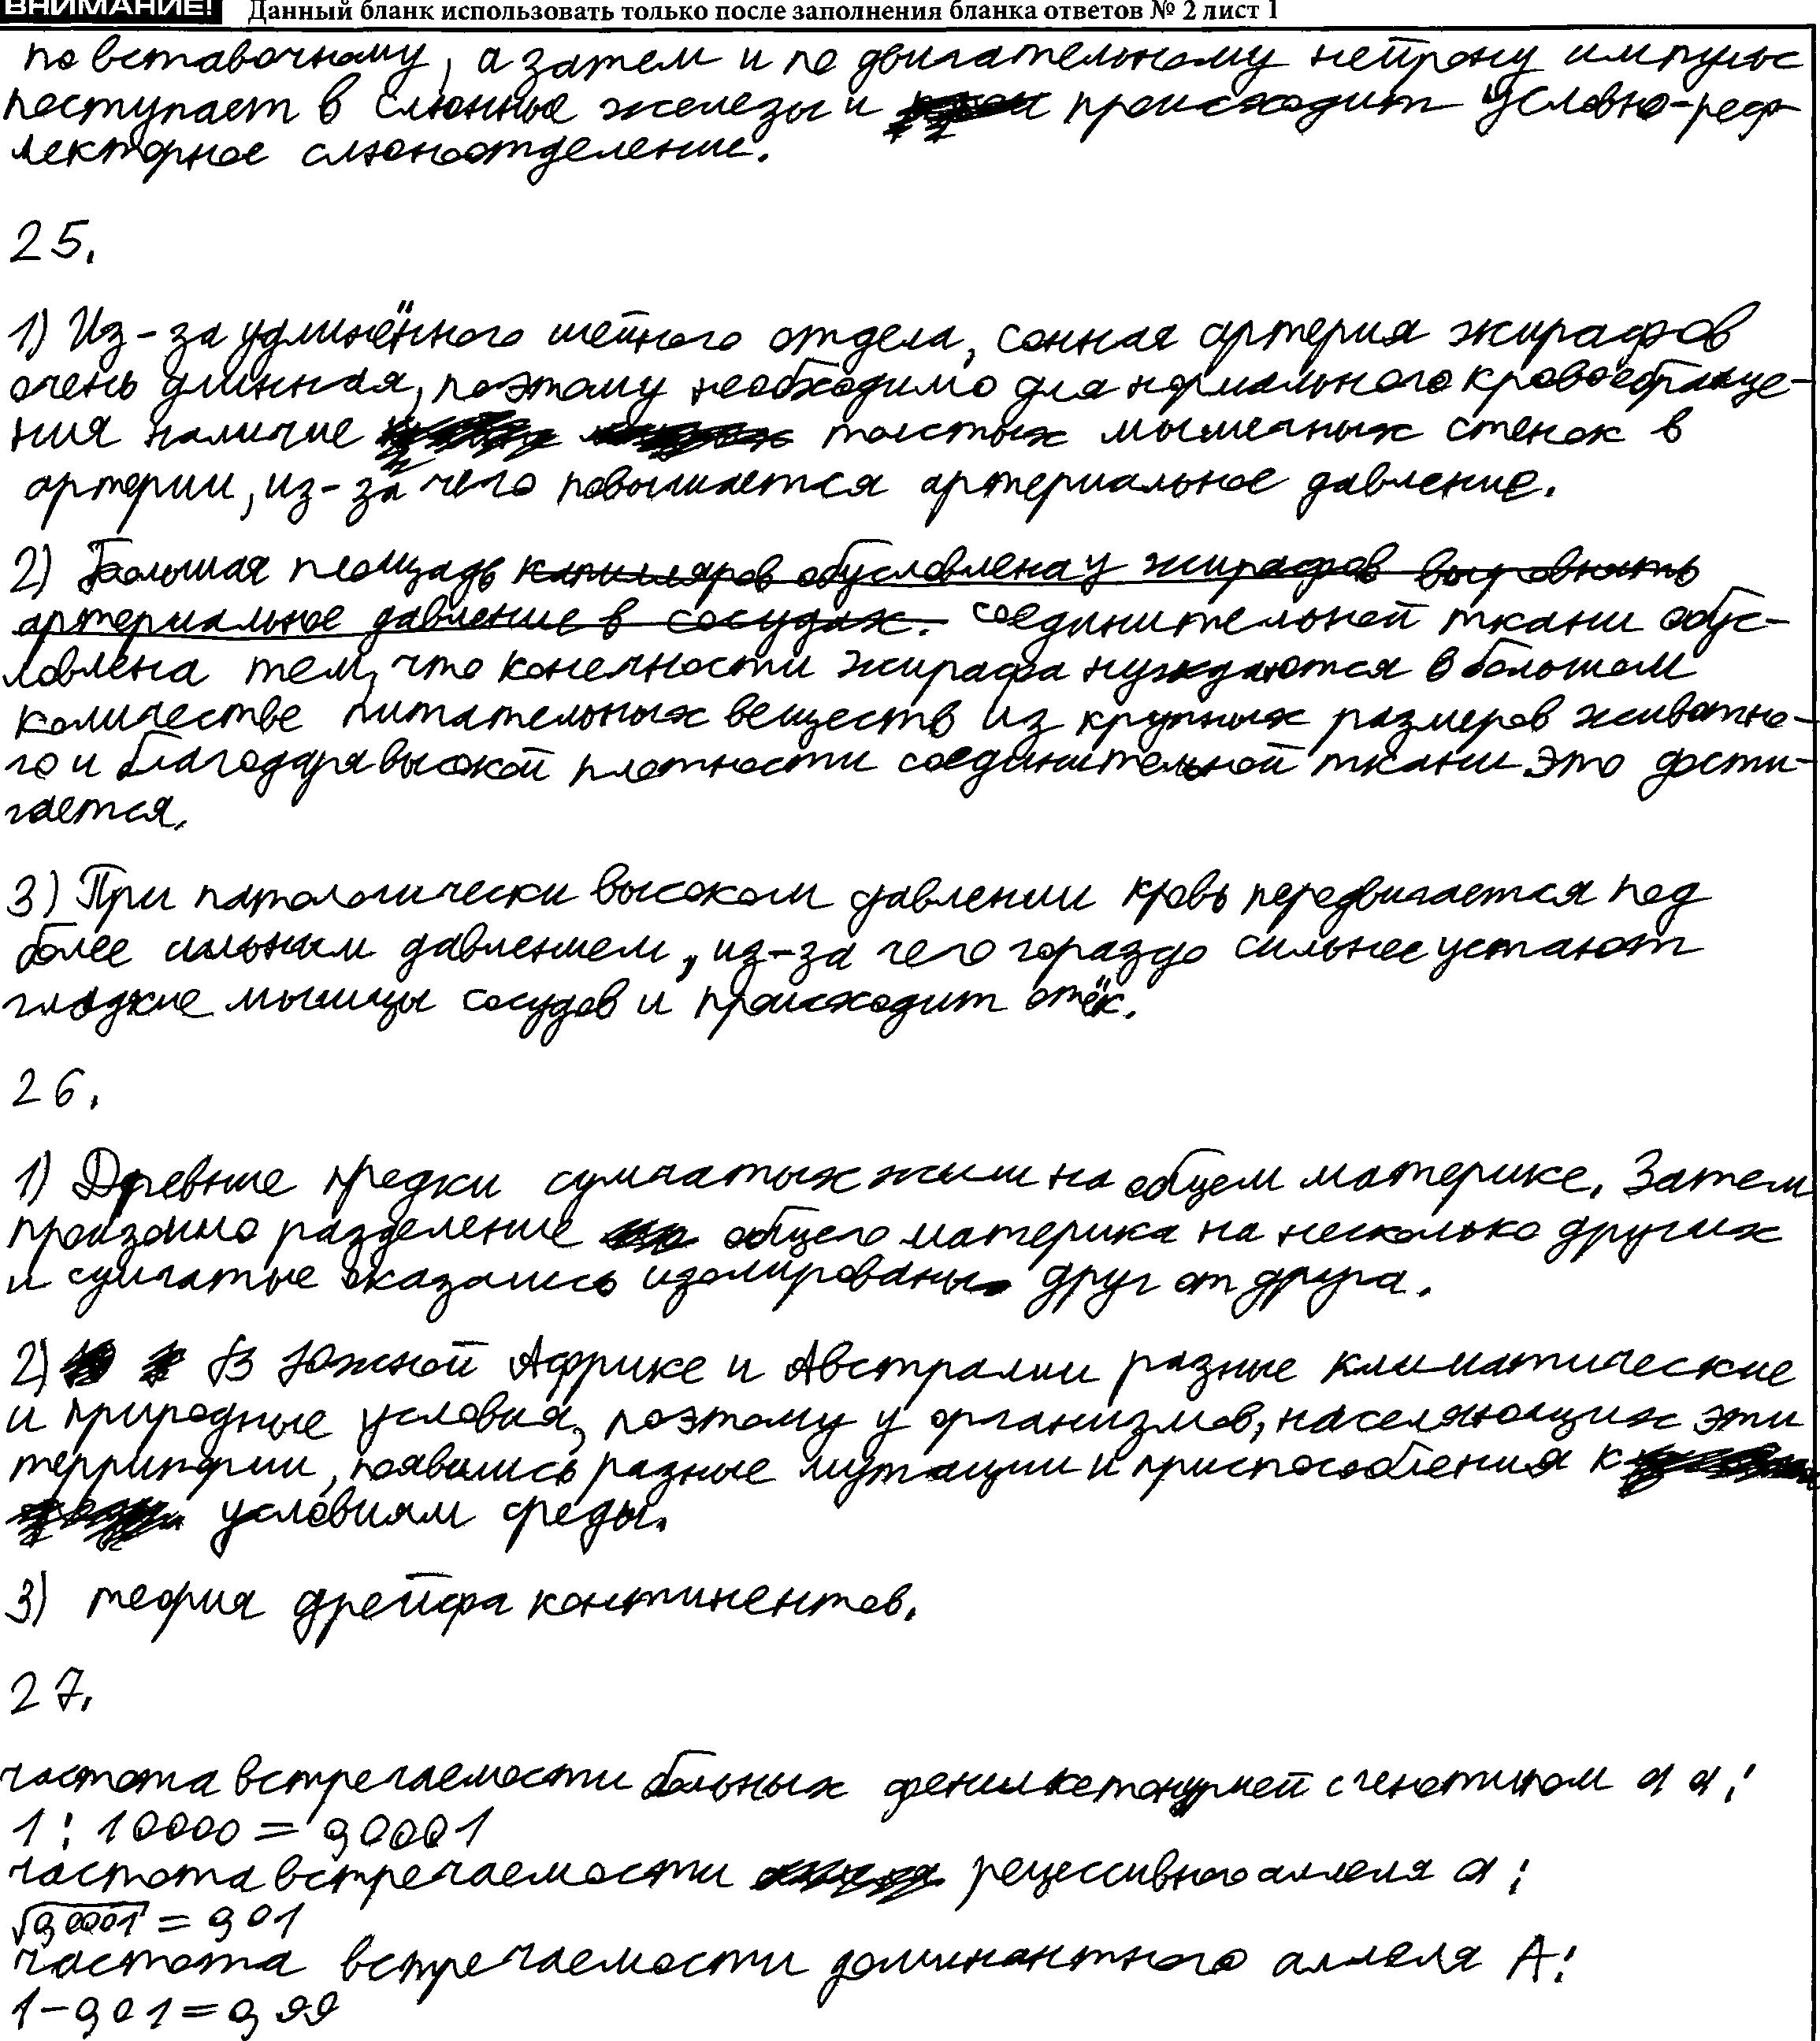 ВНИМАНИЕ! Данный бланк использовать только после заполнения бланка ответов № 2 лист 1
по вставочному, а затем и по двигательному нейрону импульс
поступает в слюнные железы и происходит условно-реф-
лекторное слюноотделение.
25.
1) Из-за удлинённого шейного отдела, сонная артерия жирафов
очень длинная, поэтому необходимо для нормального кровообраще-
ния наличие толстых мышечных стенок в
артерии, из-за чего повышается артериальное давление.
2) Большая площадь капилляров обусловлена у жирафов выровнять
артериальное давление в сосудах. соединительной ткани обус-
ловлена тем, что конечности жирафа нуждаются в большом
количестве питательных веществ из крупных размеров животно-
го и благодаря высокой плотности соединительной ткани это дости-
гается.
3) При патологически высоком давлении кровь передвигается под
более сильным давлением, из-за чего гораздо сильнее устают
гладкие мышцы сосудов и происходит отёк.
26.
1) Древние предки сумчатых жили на общем материке. Затем
произошло разделение общего материка на несколько других
и сумчатые оказались изолированы друг от друга.
2) В Южной Африке и Австралии разные климатические
и природные условия, поэтому у организмов, населяющих эти
территории, появились разные мутации и приспособления к
условиям среды.
3) теория дрейфа континентов.
27.
частота встречаемости больных фенилкетонурией с генотипом aa:
1 : 10000 = 0,0001
частота встречаемости рецессивного аллеля a:
√0,0001 = 0,01
частота встречаемости доминантного аллеля A:
1 - 0,01 = 0,99